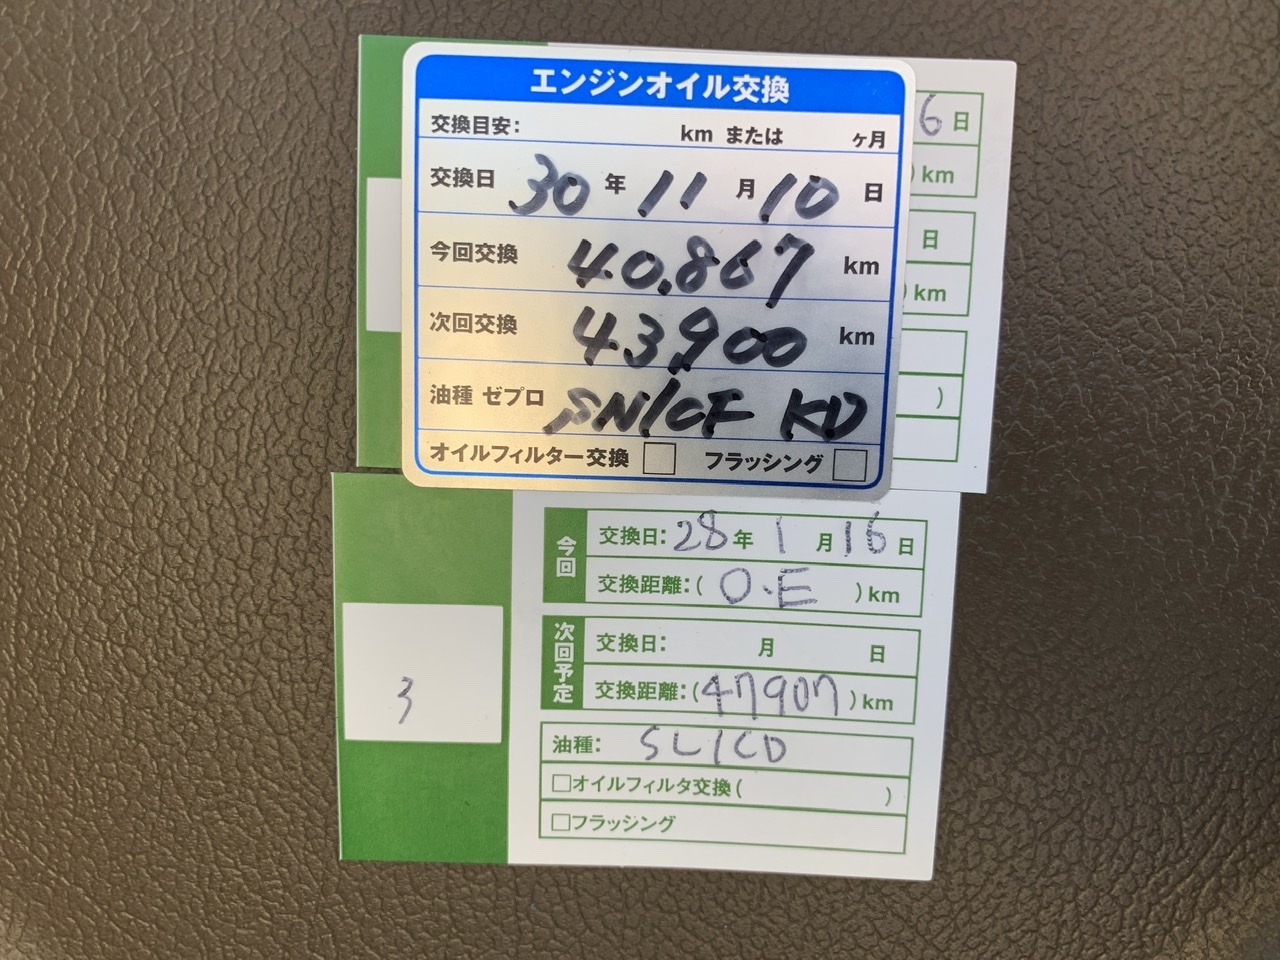 エンジンオイル交換
交換目安: km または ヶ月
交換日 30 年 11 月 10 日
今回交換 40,867 km
次回交換 43,900 km
油種 ゼプロ SN/CF KD
オイルフィルター交換 □ フラッシング □
6 日
) km
日
) km
)
今回
交換日: 28 年 1 月 16 日
交換距離: ( O.E ) km
次回予定
交換日: 月 日
交換距離: ( 47907 ) km
3
油種: SL/CD
□オイルフィルタ交換 ( )
□フラッシング